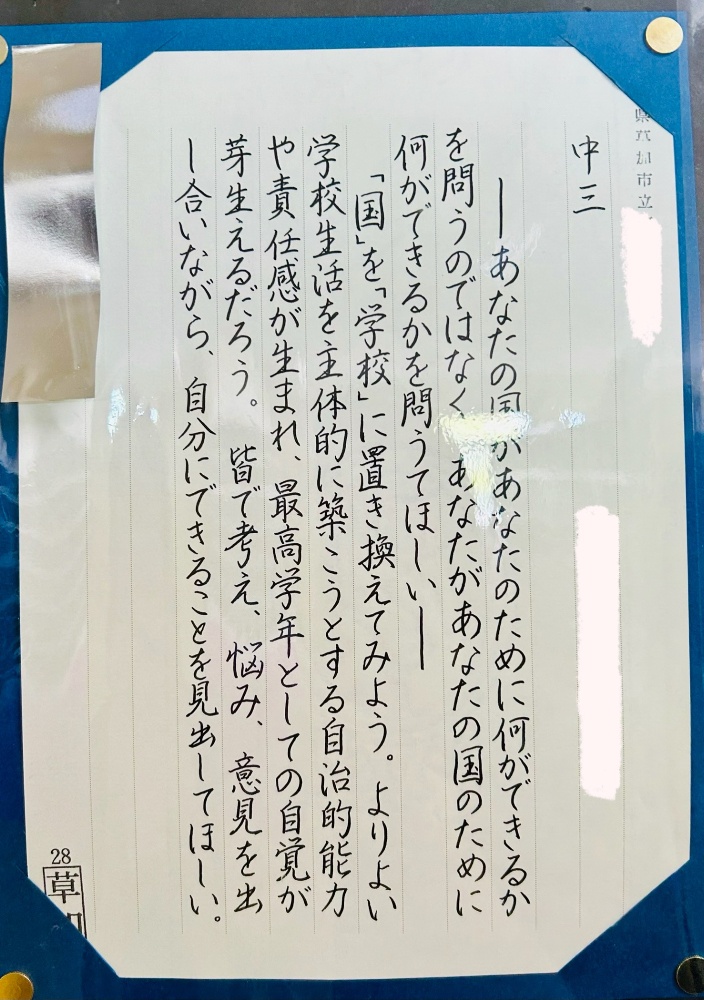 県草加市立
中三
―あなたの国があなたのために何ができるか
を問うのではなく、あなたがあなたの国のために
何ができるかを問うてほしい―
「国」を「学校」に置き換えてみよう。よりよい
学校生活を主体的に築こうとする自治的能力
や責任感が生まれ、最高学年としての自覚が
芽生えるだろう。皆で考え、悩み、意見を出
し合いながら、自分にできることを見出してほしい。
28
草加